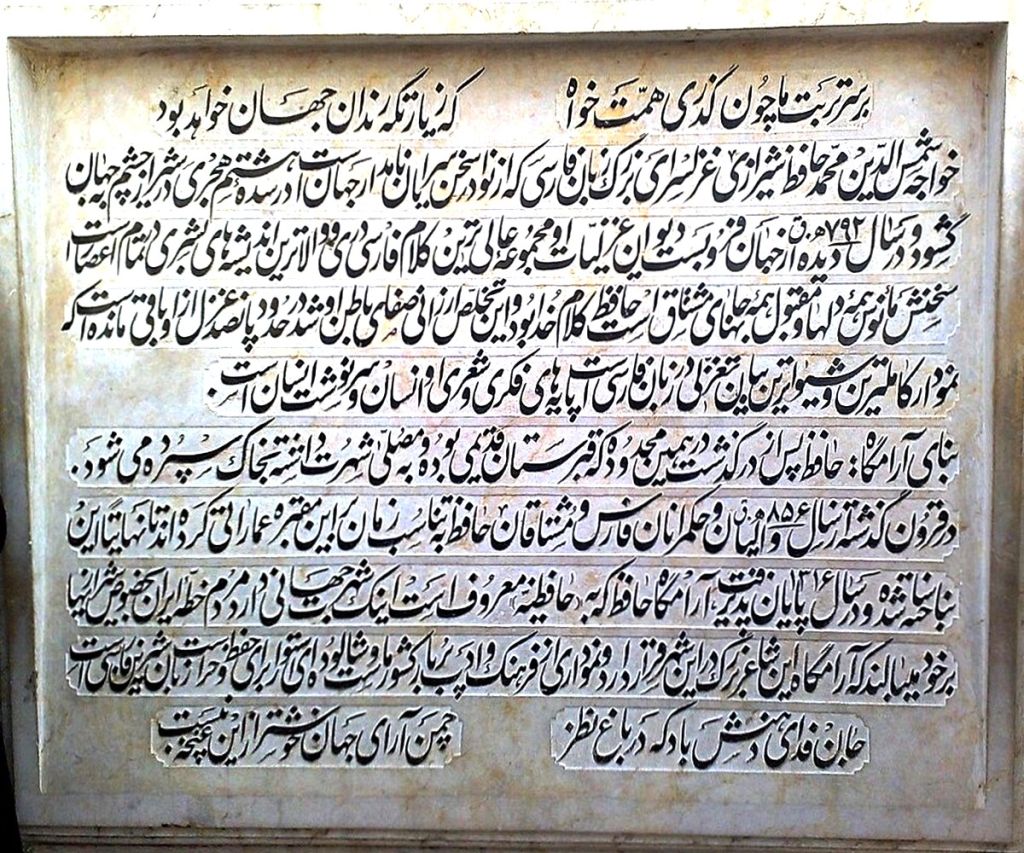 بر سر تربت ما چون گذری همّت خواه که زیارتگه رندان جهان خواهد بود
خواجه شمس الدّین محمّد حافظ شیرازی غزلسرای بزرگ زبان فارسی که از نوادر سخن سرایان نامدار جهان است در سده هشتم هجری در شیراز چشم به جهان
گشود و در سال ۷۹۲ هـ ق دیده از جهان فروبست دیوان غزلیات او مجموعه عالی ترین کلام فارسی دری و والاترین اندیشه های بشری در تمام اعصار است
سخنش مأنوس همه دلها و مقبول همه جانهای مشتاق است حافظ کلام خدا بود و این تخلص ارزانی صفای باطن او شد در حدود پانصد غزل از او باقی مانده است که
نمودار کاملترین و شیواترین بیان تغزلی در زبان فارسی است پایه های فکری و شعری او انسان و سرنوشت انسان است.
بنای آرامگاه: حافظ پس از درگذشت در همین محدوده که قبرستان قدیمی بوده و به مصلّی شهرت داشته بخاک سپرده می شود.
در قرون گذشته از سال ۸۵۶ هـ ق والیان و حکمرانان فارس و مشتاقان حافظ به تناسب زمان بر این مقبره عماراتی کرده اند تا نهایتا این
بنا ساخته شده و در سال ۱۳۱۶ پایان پذیرفت، آرامگاه حافظ که به (حافظیه) معروف است اینک شهرت جهانی دارد مردم خطه ایران بخصوص شیرازیها
بر خود میبالند که آرامگاه این شاعر بزرگ در این شهر قرار دارد و نموداری از فرهنگ و ادب پربار کشور ماست و شالوده ای استوار برای حفظ و حراست زبان شیرین فارسی است
جان فدای دهنش باد که در باغ نظر چمن آرای جهان خوشتر از این غنچه نبست